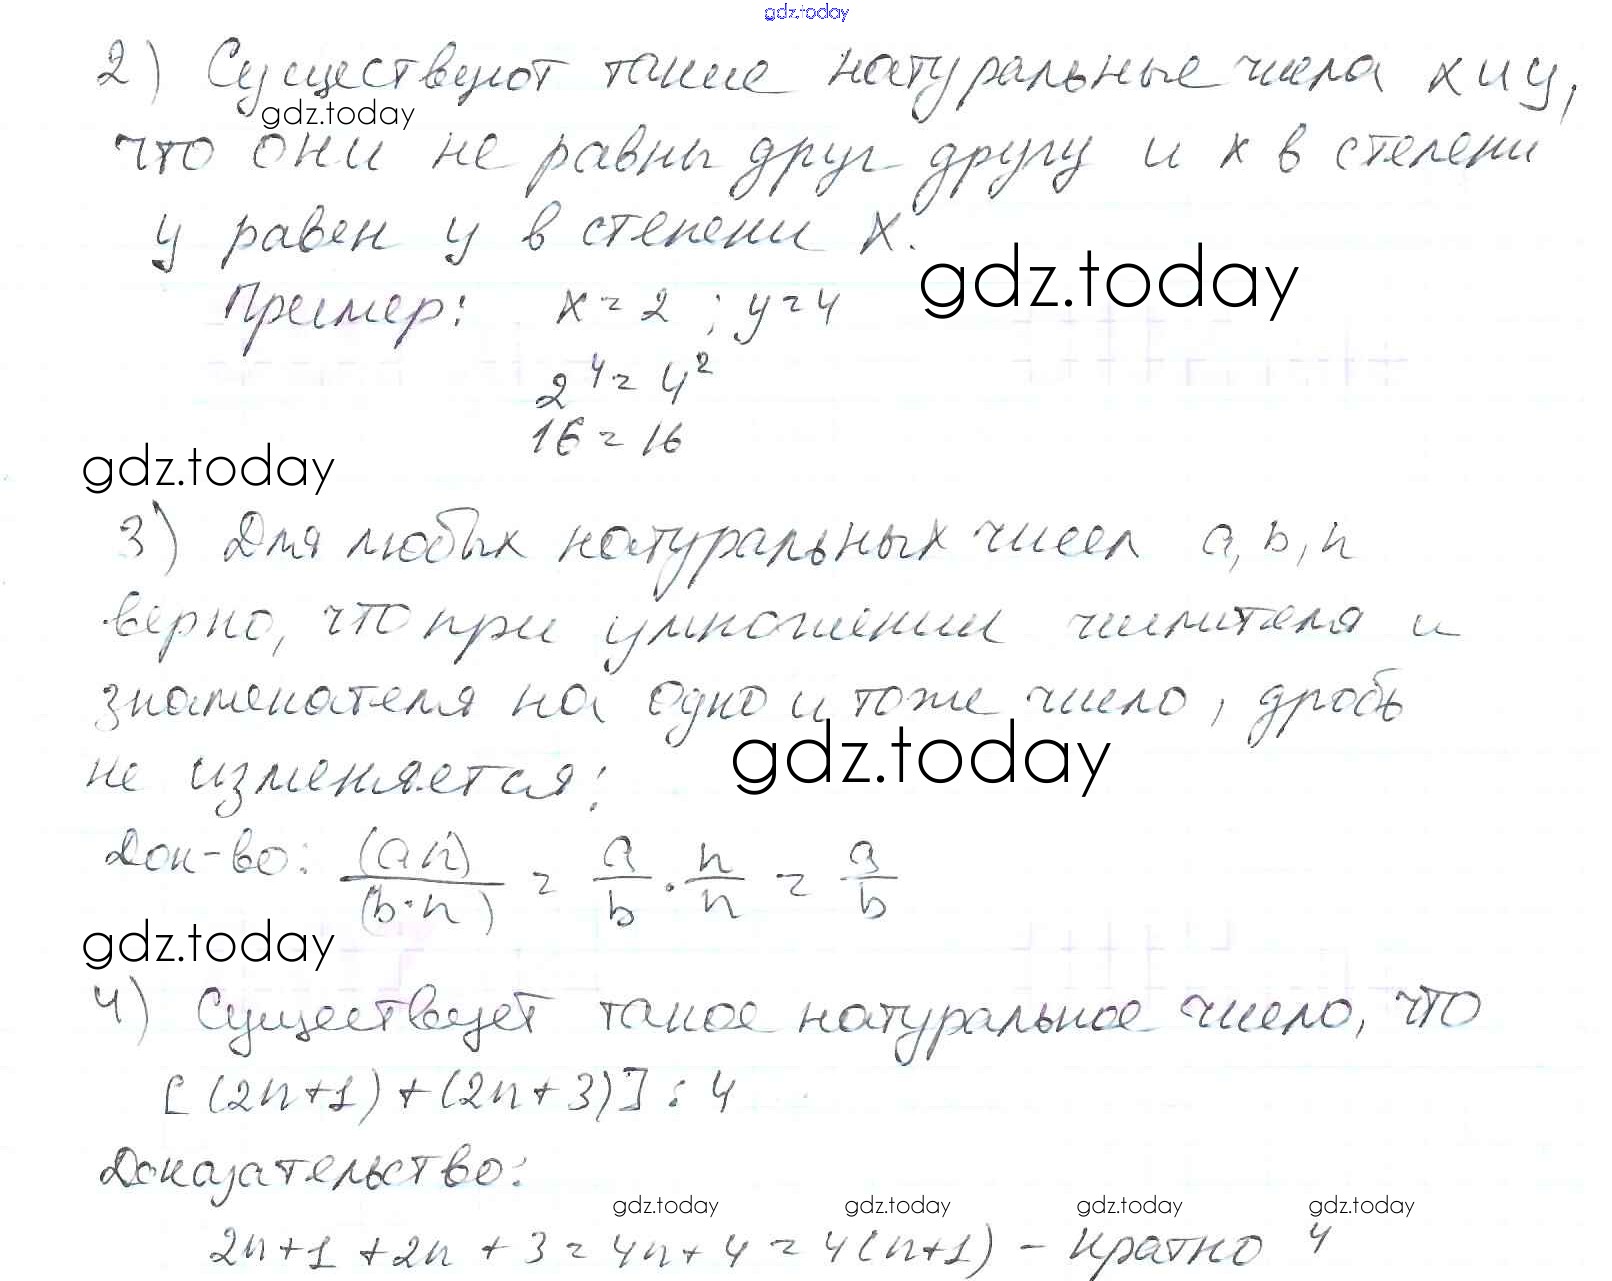 gdz.today
2) Существуют такие натуральные числа x и y,
gdz.today
что они не равны друг другу и x в степени
y равен y в степени x.
gdz.today
Пример: x = 2 ; y = 4
2⁴ = 4²
16 = 16
gdz.today
3) Для любых натуральных чисел a, b, n
верно, что при умножении числителя и
знаменателя на одно и тоже число, дробь
не изменяется:
gdz.today
Док-во: (a·n)/(b·n) = a/b · n/n = a/b
gdz.today
4) Существует такое натуральное число, что
[(2n+1)+(2n+3)] : 4
Доказательство:
gdz.today gdz.today gdz.today gdz.today
2n+1+2n+3=4n+4=4(n+1) – кратно 4